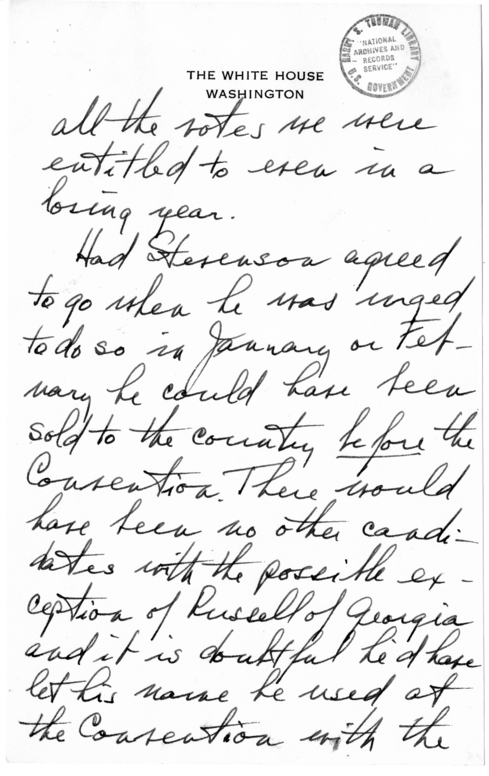 HARRY S. TRUMAN LIBRARY
"NATIONAL
ARCHIVES AND
RECORDS
SERVICE"
U.S. GOVERNMENT
THE WHITE HOUSE
WASHINGTON
all the votes we were
entitled to even in a
losing year.
Had Stevenson agreed
to go when he was urged
to do so in January or Feb-
ruary he could have been
sold to the country before the
Convention. There would
have been no other candi-
dates with the possible ex-
ception of Russell of Georgia
and it is doubtful he'd have
let his name be used at
the Convention with the